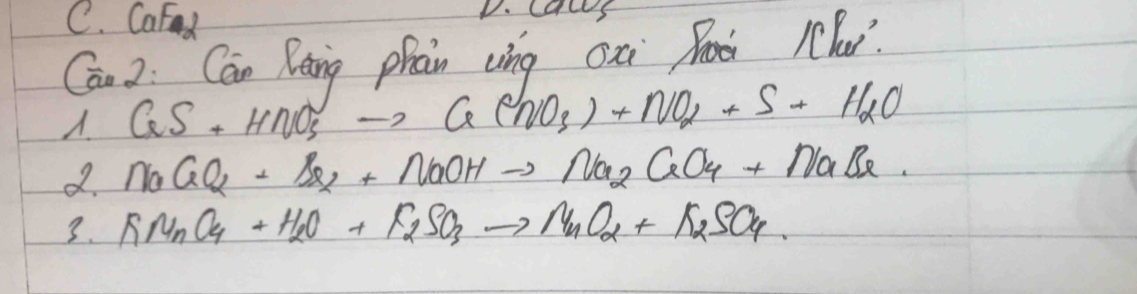 C. CaF2 D. CaCO3
Câu 2: Cân bằng phản ứng oxi hoá khử.
1. CrS + HNO3 → Cr(NO3) + NO2 + S + H2O
2. NaCrO2 + Br2 + NaOH → Na2CrO4 + NaBr.
3. KMnO4 + H2O + K2SO3 → MnO2 + K2SO4.